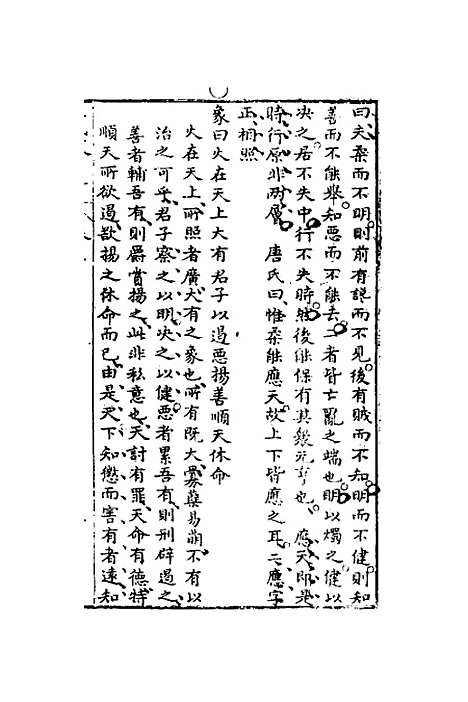 曰夫柔而不明則前有說而不見後有賊而不知明而不健則知
善而不能舉知惡而不能去二者皆亡亂之端也明以燭之健以
决之居不失中行不失時然後能保有其盛元亨也 應天即是
時行原非兩層 唐氏曰惟柔能應天故上下皆應之耳二應字
正相照
象曰火在天上大有君子以遏惡揚善順天休命
火在天上所照者廣大有之象也所有旣大釁蘖易萌不有以
治之可乎君子察之以明决之以健惡者累吾有則刑辟遏之
善者輔吾有則爵賞揚之此非私意也天討有罪天命有德特
順天所欲遏欲揚之休命而已由是天下知懲而害有者遠知